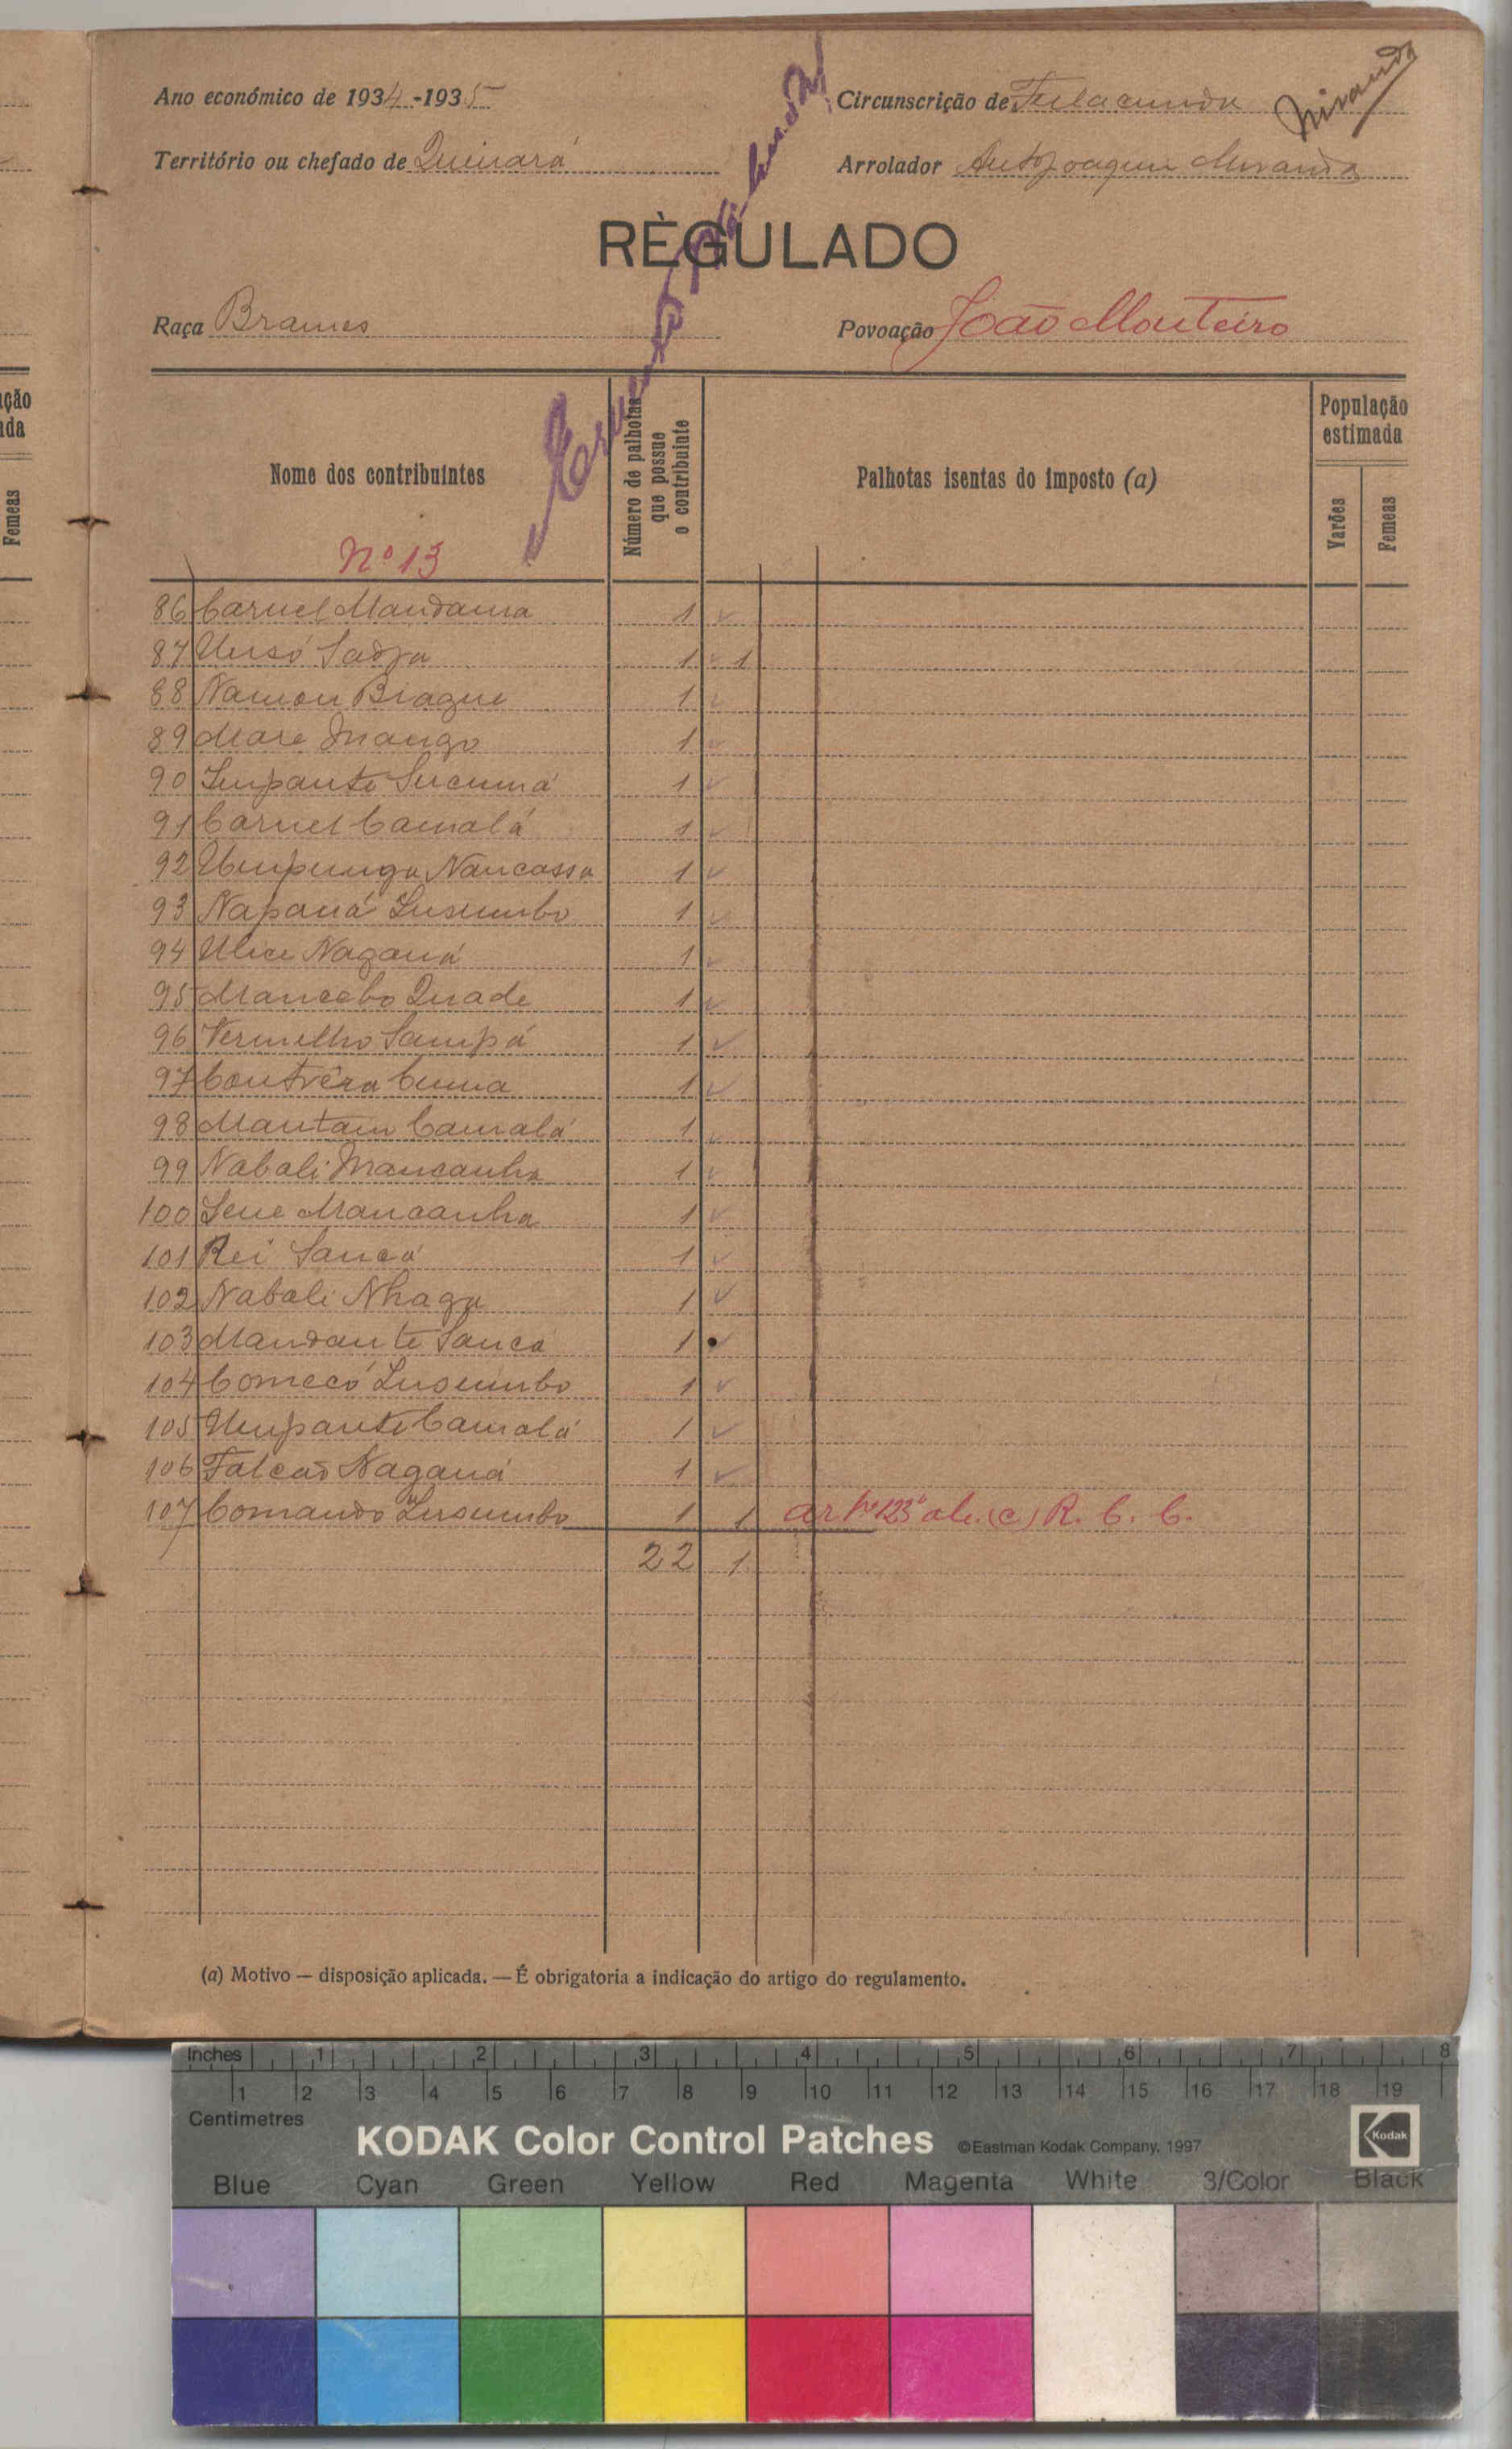 Ano económico de 1934-1935
Circunscrição de Fulacunda
Miranda
Território ou chefado de Quinará
Arrolador Antº Joaquim Miranda
RÈGULADO
Raça Brames
Povoação João Monteiro
Nome dos contribuintes
Nº 13
Número de palhotas que possue o contribuinte
Palhotas isentas do imposto (a)
População estimada
Varões
Femeas
86 Carnel Mandama 1
87 Unsó Sadja 1 1
88 Namon Biague 1
89 Mare Mango 1
90 Impante Sucumá 1
91 Carnel Camalá 1
92 Umpunga Nancassa 1
93 Napaná Lusumbo 1
94 Ulice Naganá 1
95 Mancebo Quade 1
96 Vermelho Sampá 1
97 Contrêra Cuma 1
98 Mantam Camalá 1
99 Nabali Mancanha 1
100 Lene Mancanha 1
101 Rei Sanca 1
102 Nabali Nhaga 1
103 Mandante Sanca 1
104 Comecó Lusumbo 1
105 Umpante Camalá 1
106 Falcão Naganá 1
107 Comando Lusumbo 1 1 artº 123º ali. (c) R. C. C.
22 1
(a) Motivo — disposição aplicada. — É obrigatoria a indicação do artigo do regulamento.
ação
ada
Femeas
Inches 1 2 3 4 5 6 7 8
1 2 3 4 5 6 7 8 9 10 11 12 13 14 15 16 17 18 19
Centimetres
KODAK Color Control Patches ©Eastman Kodak Company, 1997 Kodak
Blue Cyan Green Yellow Red Magenta White 3/Color Black